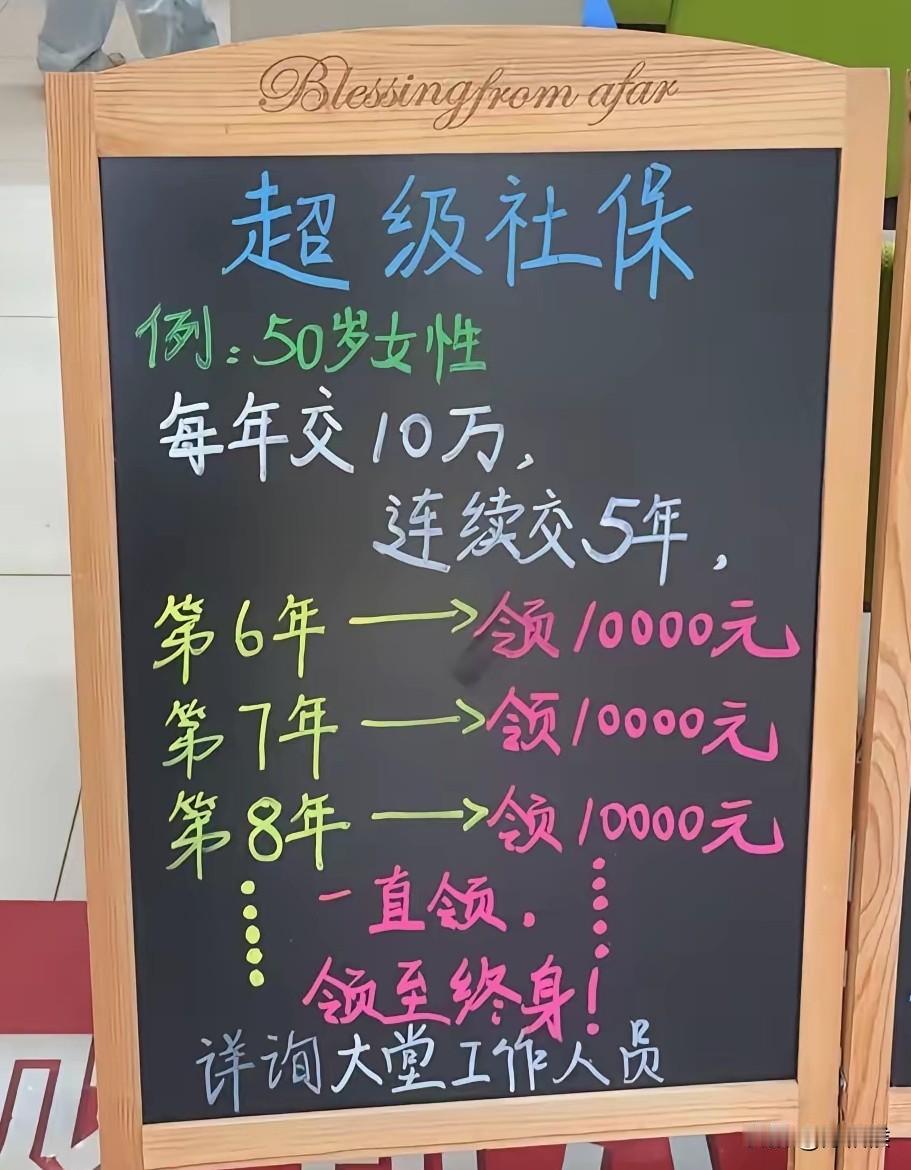 Blessing from afar
超级社保
例:50岁女性
每年交10万,
连续交5年,
第6年→领10000元
第7年→领10000元
第8年→领10000元
一直领.
领至终身!
详询大堂工作人员